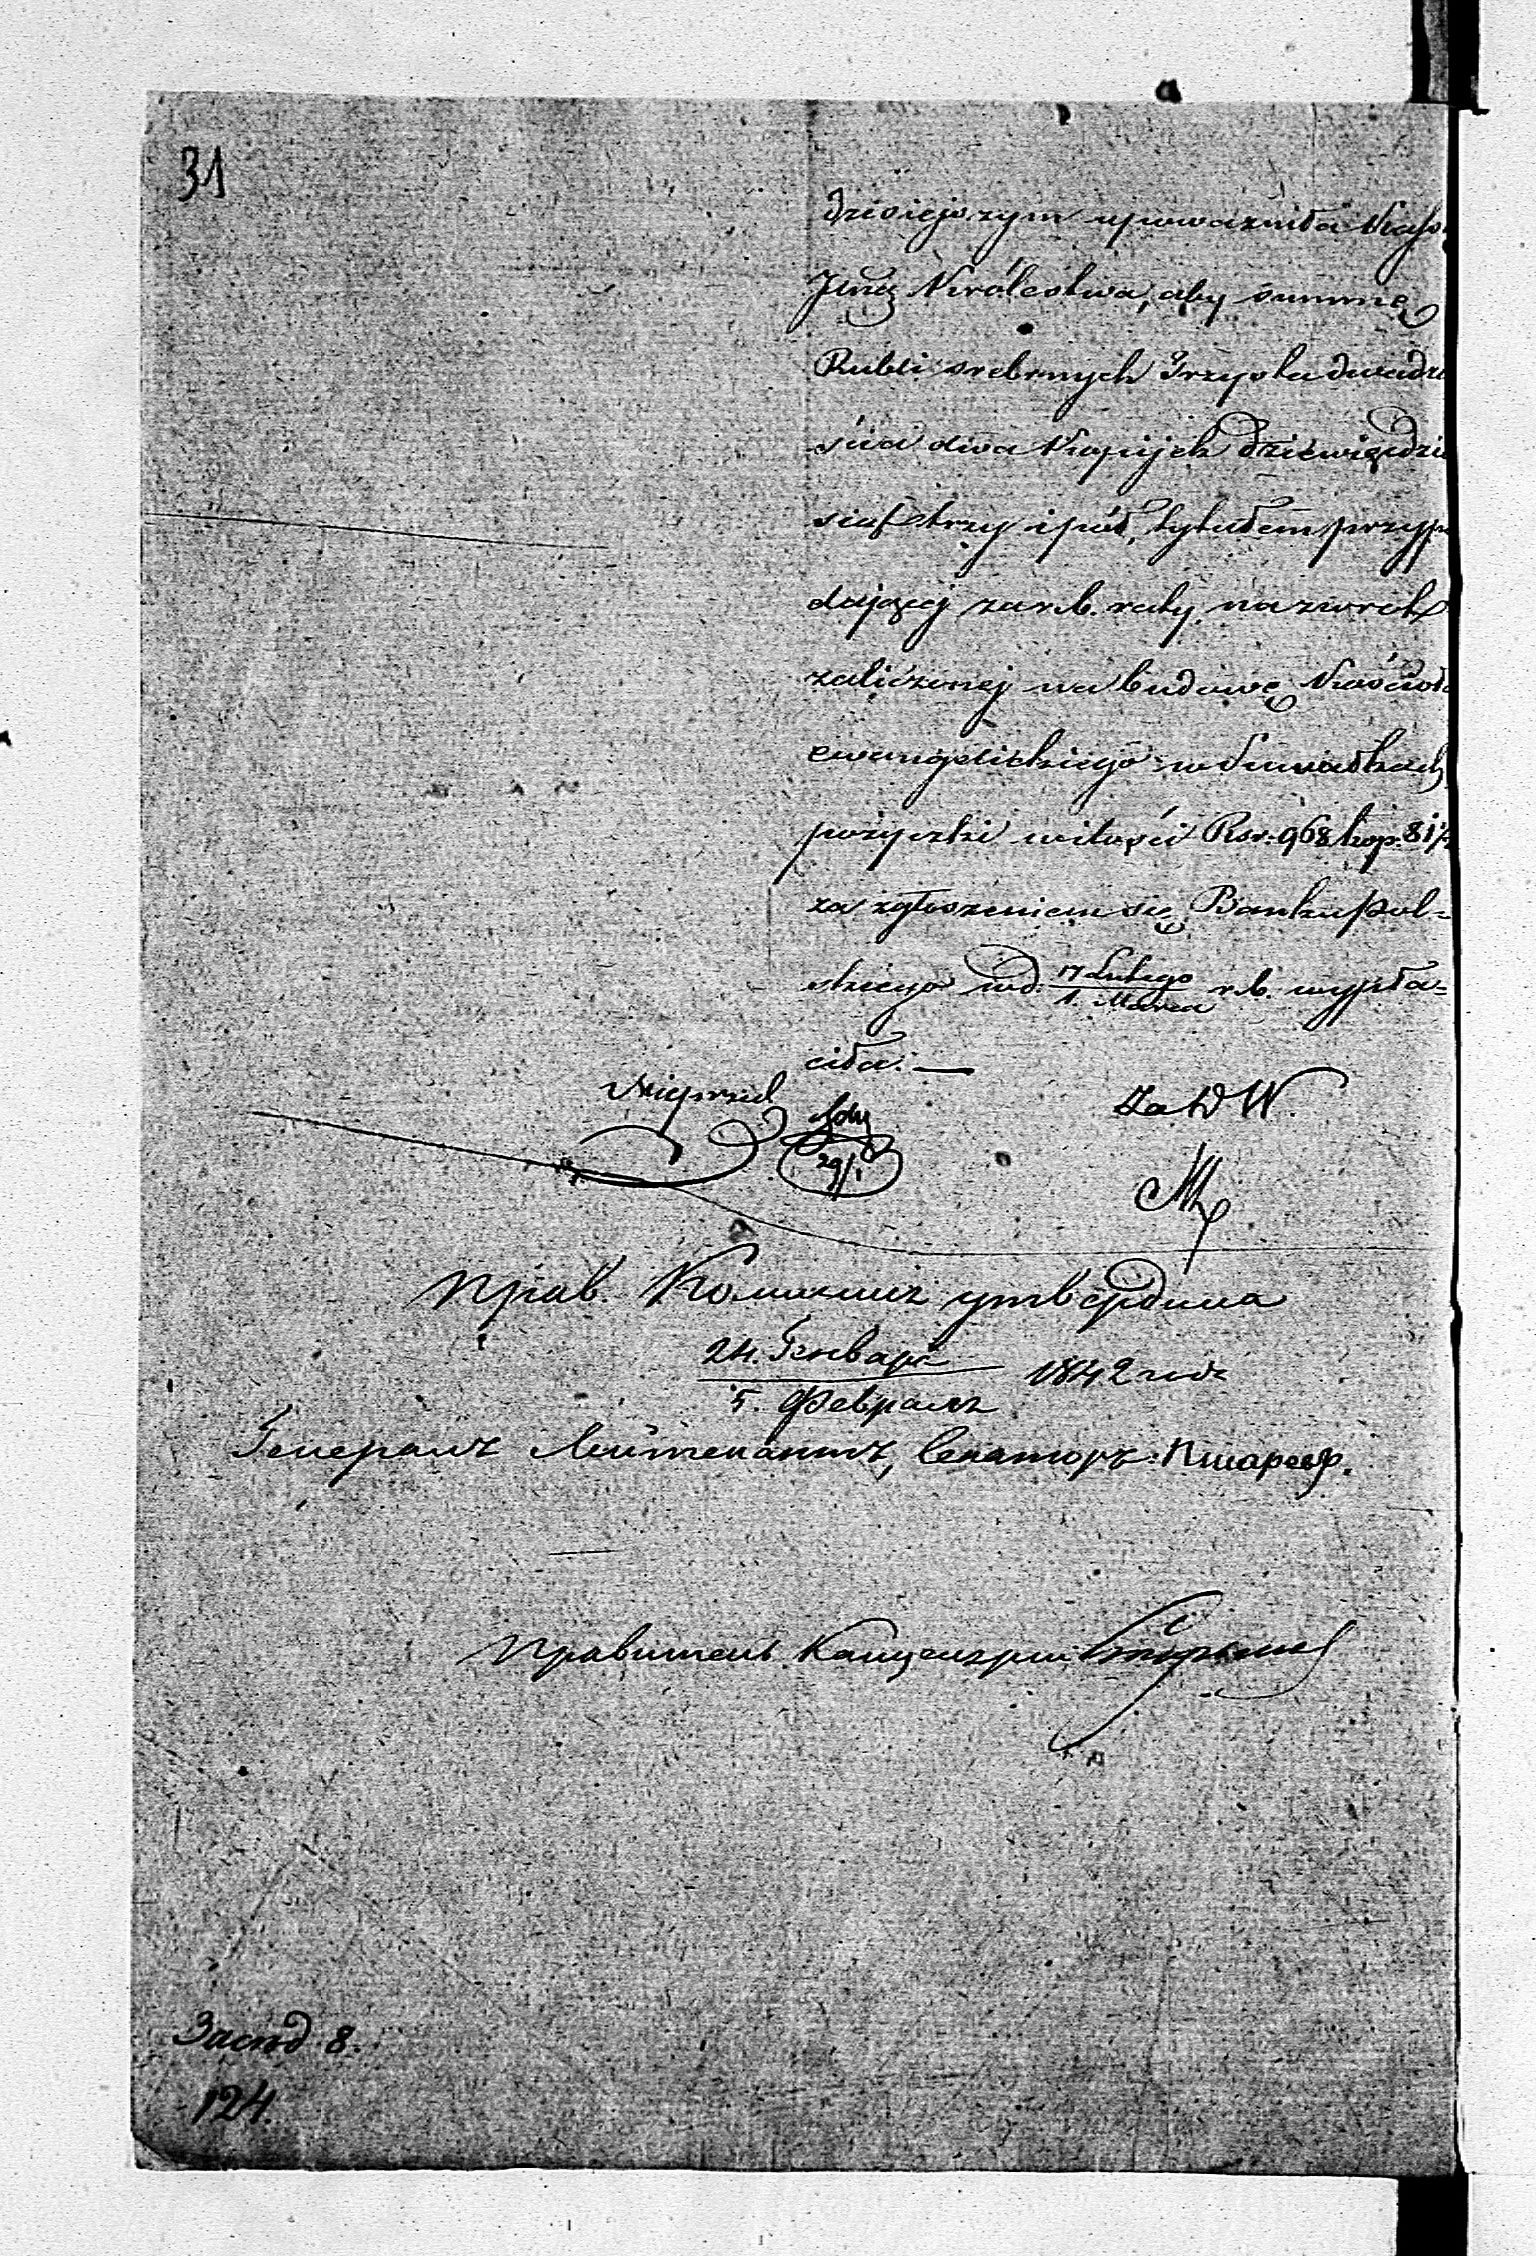 31
dzisiejszym upoważniła Kasso
Jlną Królestwa, aby summę
Rubli srebrnych Trzysta dwadzie
ścia dwa Kopijek dziewięćdzie
siąt trzy i pół, tytułem przypa
dającej za r.b. raty na zwrot
zaliczonej na budowę Kościoła
ewangelickiego w Suwałkach
pożyczki w ilości Rsr. 968 kop. 81½
za zgłoszeniem się Banku Pol=
skiego w d. 17 Lutego / 1. Marca r.b. wypła=
ciła.—
Za D W.
29/1
Прав. Коммисія утвердила
24. Генваря
5. Февраля 1842 года
Генералъ Лейтенантъ, Сенаторъ: Писарев.
Правитель Канцеляріи
Засѣд 8.
124.